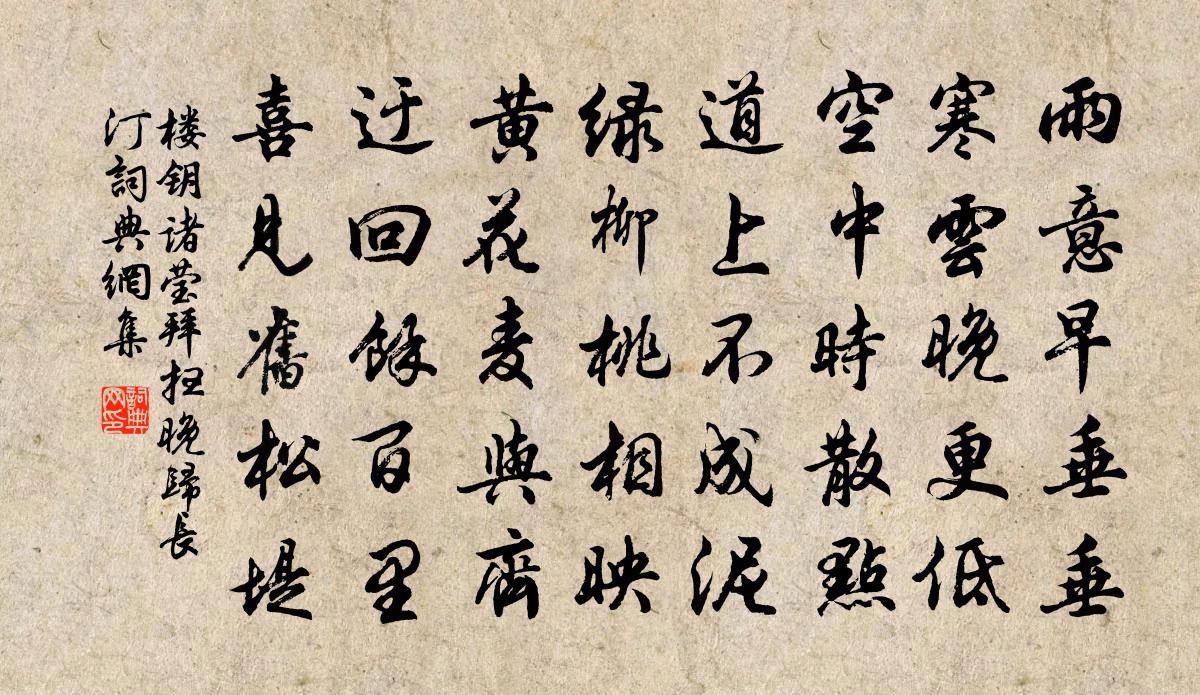 雨意早垂垂
寒雲晚更低
空中時散點
道上不成泥
绿柳桃相映
黄花麦與齊
迂回餘百里
喜見舊松堤
楼钥诸莹拜扫晚歸長
汀詞典網集
詞典
网印